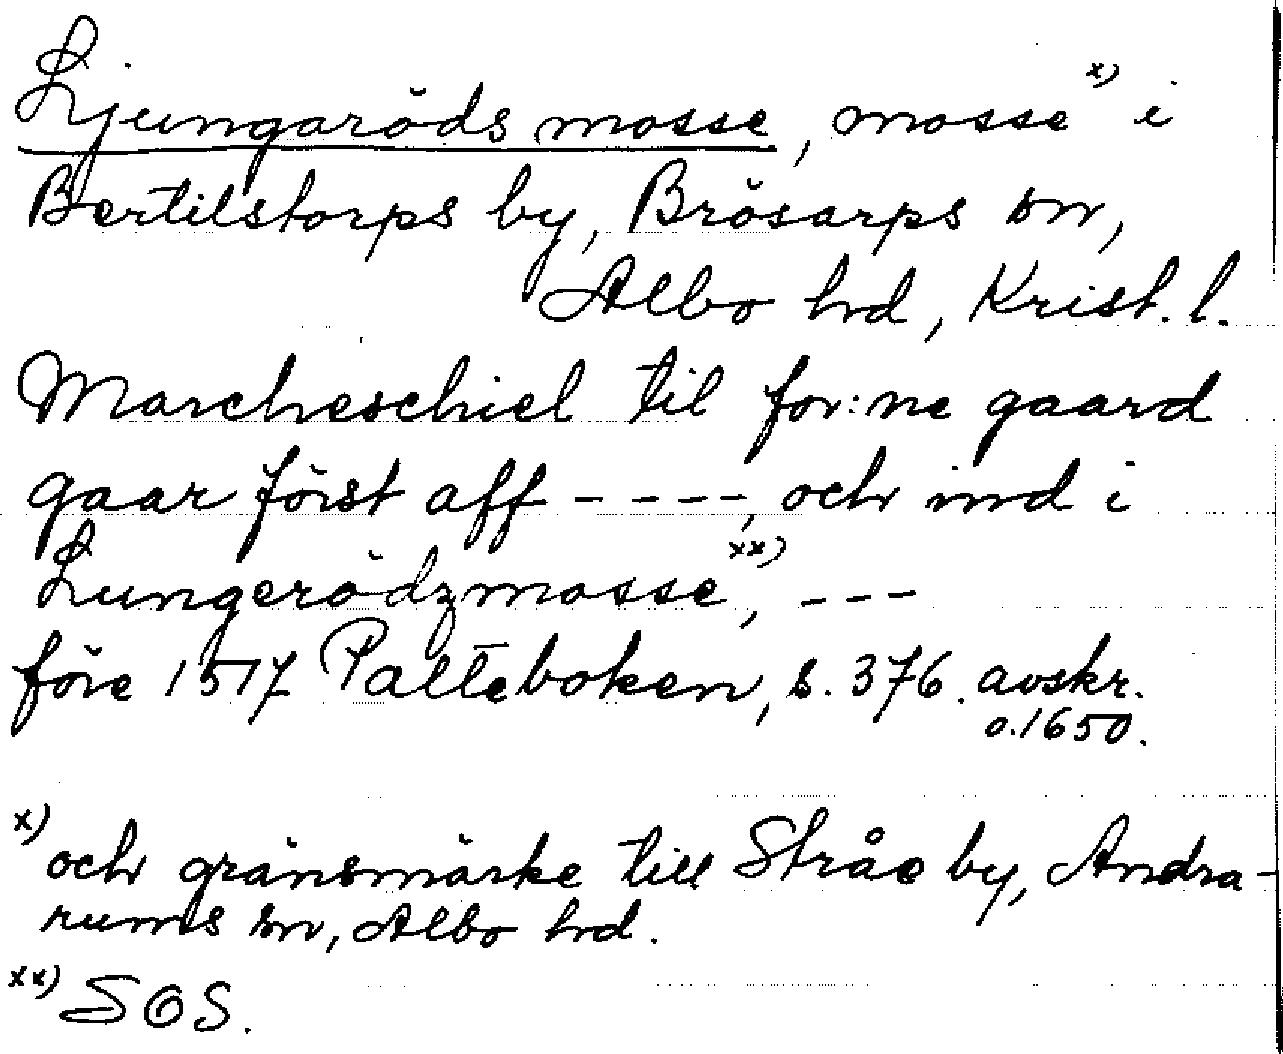 Ljungaröds mosse, mosse x) i
Bertilstorps by, Brösarps sn,
Albo hd, Krist. l.
Marcheschiel til for:ne gaard
gaar först aff ----, och ind i
Lungerödzmosse xx), ---
före 1517 Palteboken, s. 376. avskr.
o. 1650.
x) och gränsmärke till Stråe by, Andra-
rums sn, Albo hd.
xx) SOS.